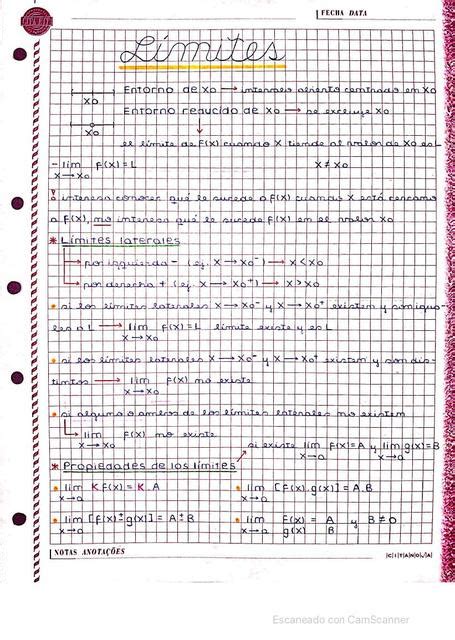 FECHA DATA
Límites
Entorno de Xo → intervalo abierto centrado en Xo
Xo
Entorno reducido de Xo → se excluye Xo
Xo
el límite de F(X) cuando X tiende al valor de Xo es L
- lim F(X) = L X ≠ Xo
X→Xo
interesa conocer qué le sucede a F(X) cuando X está cercano
a F(X), no interesa qué le sucede F(X) en el valor Xo
* Límites laterales
por izquierda - (ej. X → Xo⁻) → X < Xo
por derecha + (ej. X → Xo⁺) → X > Xo
• si los límites laterales X → Xo⁻ y X → Xo⁺ existen y son igua-
les a L → lim F(X) = L límite existe y es L
X→Xo
• si los límites laterales X → Xo⁻ y X → Xo⁺ existen y son dis-
tintos → lim F(X) no existe
X→Xo
• si alguno o ambos de los límites laterales no existen
lim F(X) no existe
X→Xo
si existe lim F(X) = A y lim g(X) = B
X→a X→a
* Propiedades de los límites
• lim K F(X) = K.A • lim [F(X).g(X)] = A.B
X→a X→a
• lim [F(X) ± g(X)] = A ± B • lim F(X) = A y B ≠ 0
X→a X→a g(X) B
NOTAS ANOTAÇÕES
CITANOVA
Escaneado con CamScanner